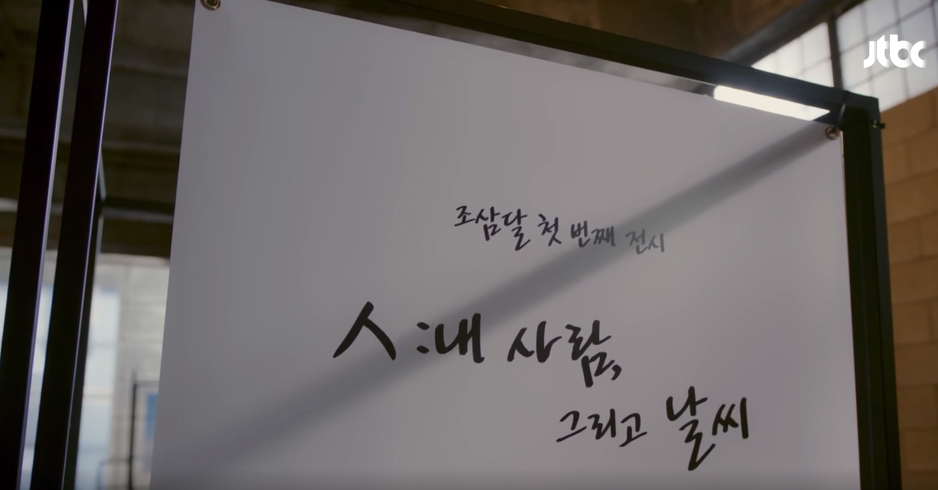 jtbc
조삼달 첫 번째 전시
人:내 사람,
그리고 날씨